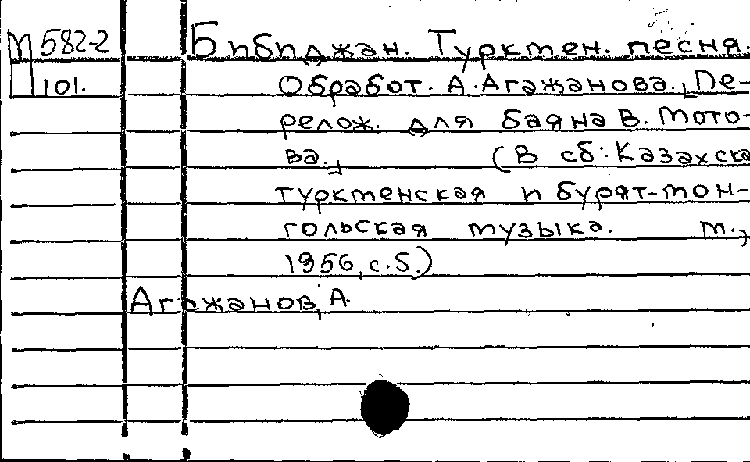 М 582-2
101.
Бибиджан. Туркмен. песня.
Обработ. А. Агажанова. Пе-
релож. для баяна В. Мото-
ва.
(В сб: Казахска
туркменская и бурят-мон-
гольская музыка. М.,
1956, с. 5.)
Агажанов, А.